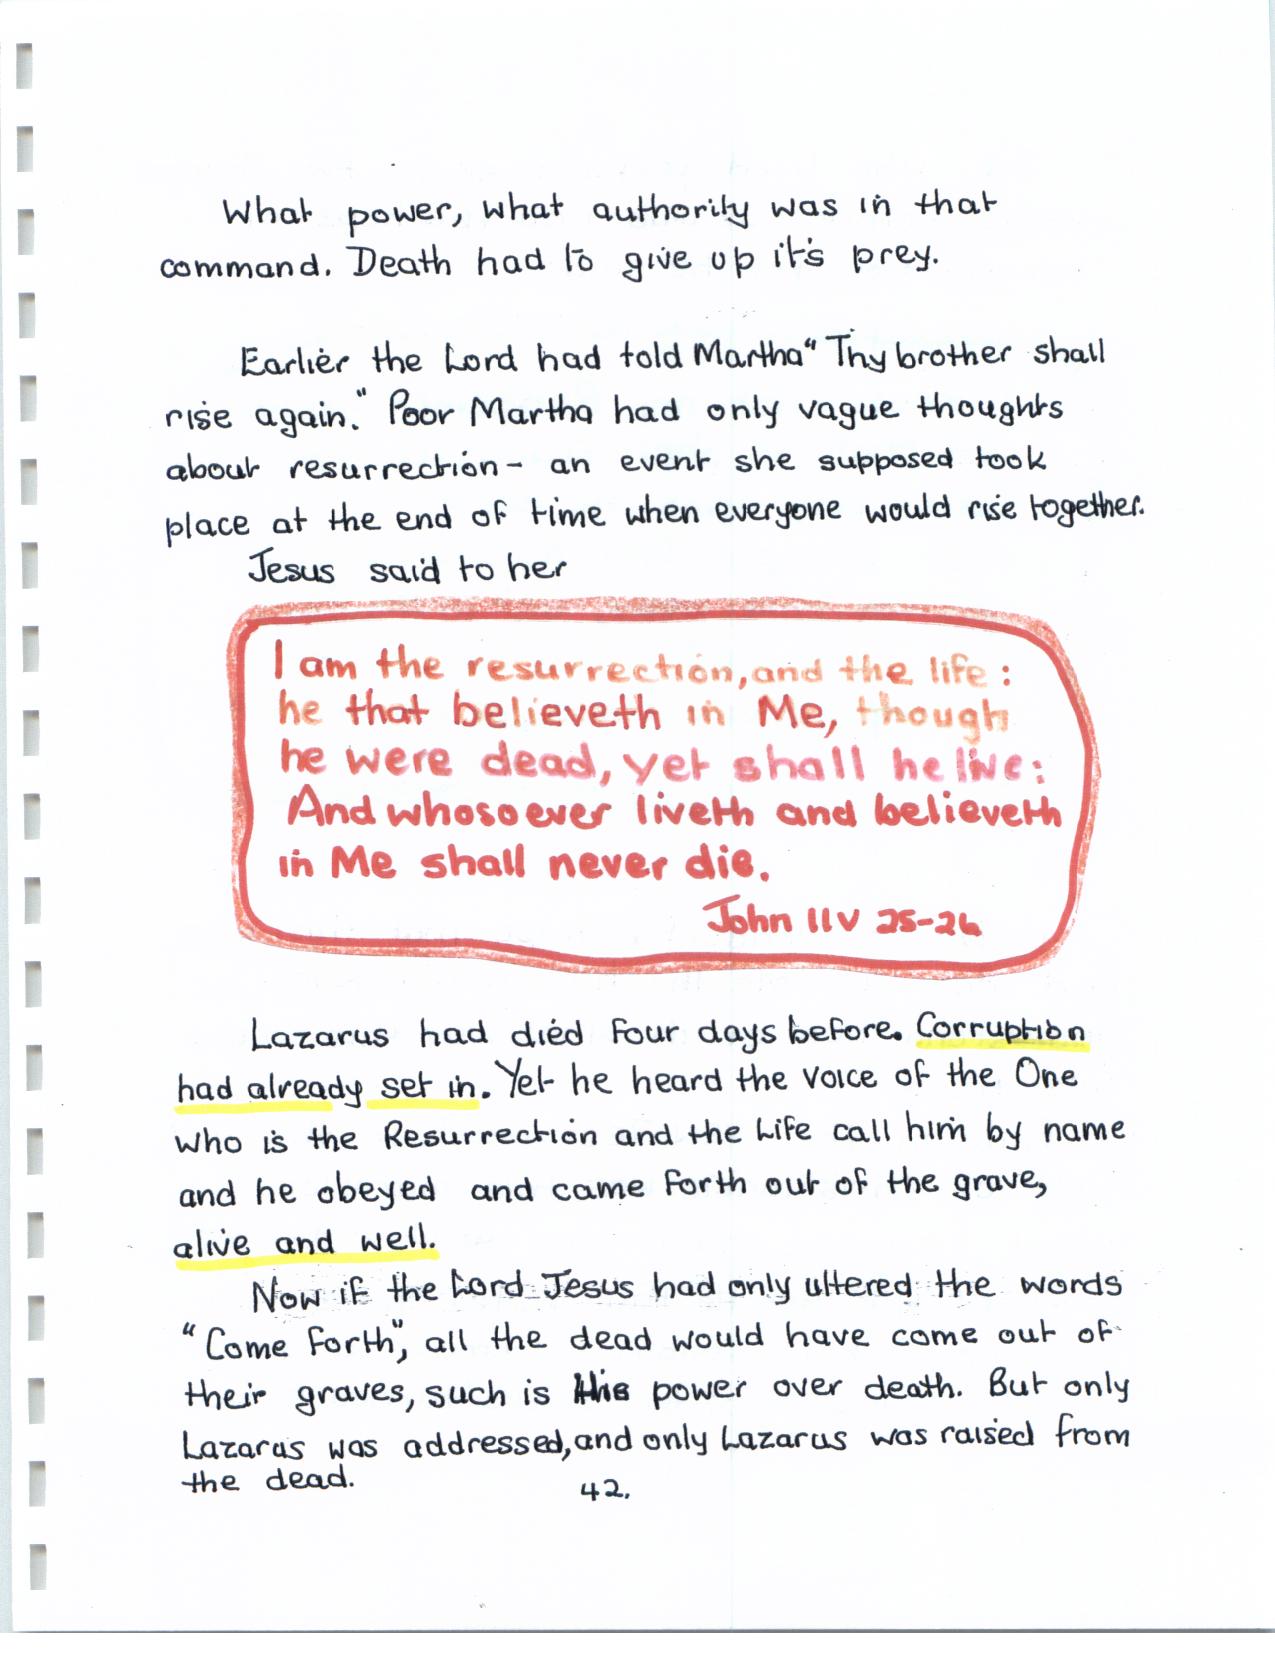 What power, what authority was in that
command. Death had to give up it's prey.
Earlier the Lord had told Martha "Thy brother shall
rise again." Poor Martha had only vague thoughts
about resurrection - an event she supposed took
place at the end of time when everyone would rise together.
Jesus said to her
I am the resurrection, and the life :
he that believeth in Me, though
he were dead, yet shall he live :
And whosoever liveth and believeth
in Me shall never die.
John 11 v 25-26
Lazarus had died four days before. Corruption
had already set in. Yet he heard the voice of the One
who is the Resurrection and the Life call him by name
and he obeyed and came forth out of the grave,
alive and well.
Now if the Lord Jesus had only uttered the words
"Come forth", all the dead would have come out of
their graves, such is His power over death. But only
Lazarus was addressed, and only Lazarus was raised from
the dead.
42.